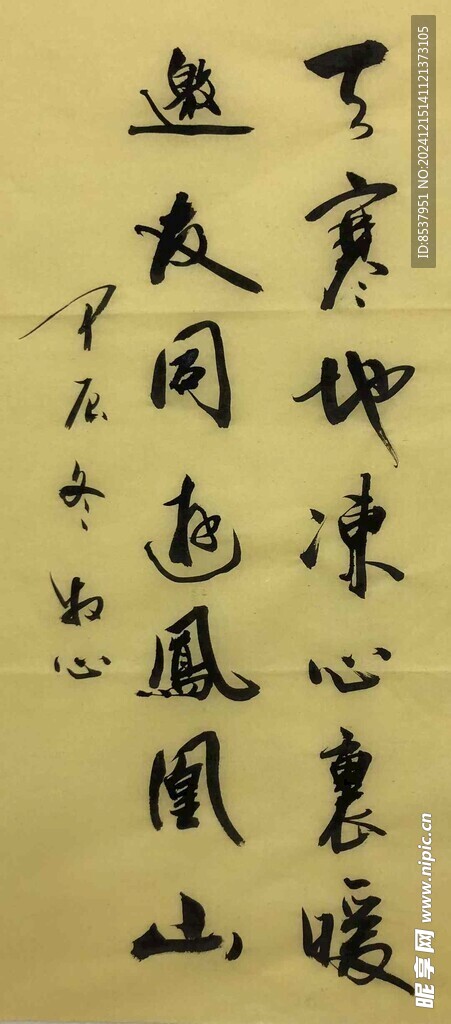 天寒地凍心裏暖
邀友同遊鳳凰山
甲辰冬牧心
ID:8537951 NO:20241215141121373105
昵享网 www.nipic.cn